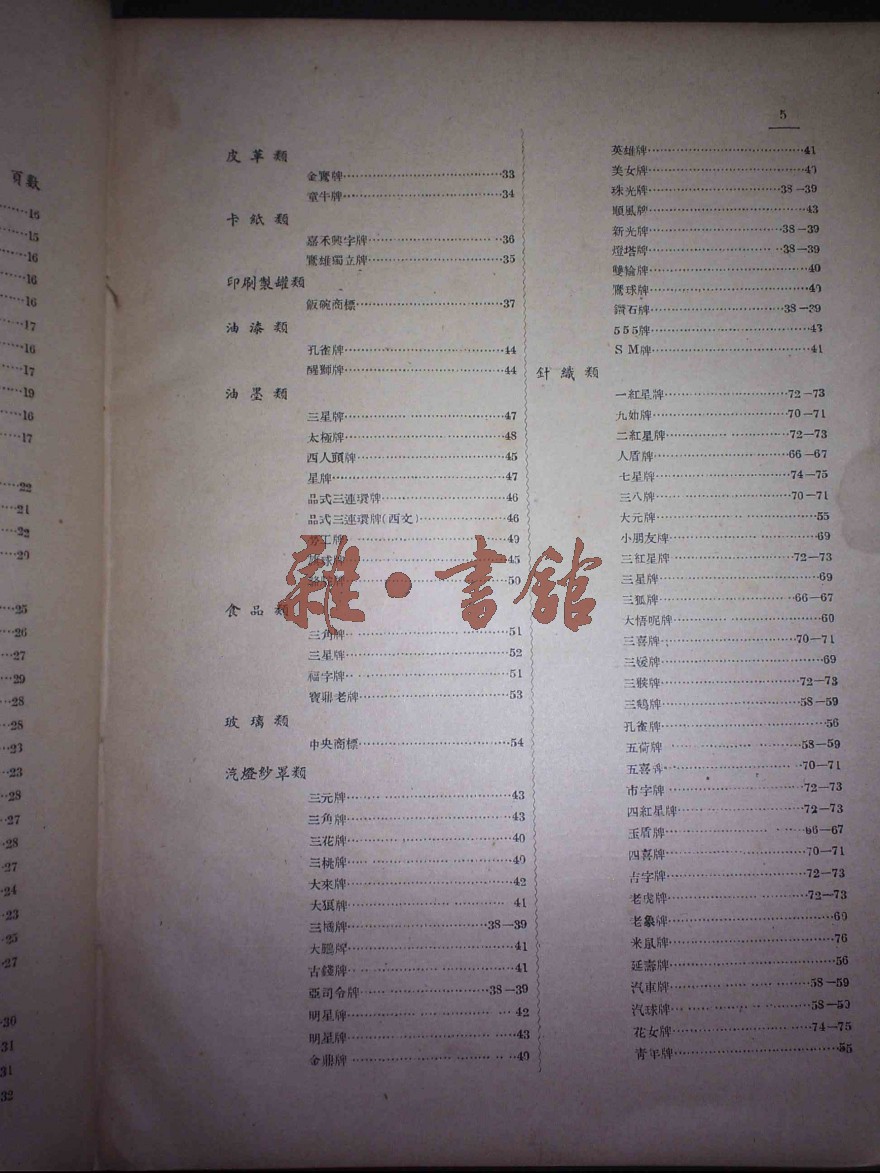 頁數
16
15
16
16
16
17
16
17
19
16
17
22
21
22
20
25
26
27
29
28
28
23
23
28
27
28
27
24
23
25
27
30
31
31
32
5
皮革類
金鷲牌 33
童牛牌 34
卡紙類
嘉禾興字牌 36
鷲雄獨立牌 35
印刷製罐類
飯碗商標 37
油漆類
孔雀牌 44
醒獅牌 44
油墨類
三星牌 47
太極牌 48
四人頭牌 45
星牌 47
品式三連環牌 46
品式三連環牌(西文) 46
勞工牌 49
球牌 45
牌 50
食品類
三角牌 51
三星牌 52
福字牌 51
寶鼎老牌 53
玻璃類
中央商標 54
汽燈紗罩類
三元牌 43
三角牌 43
三花牌 40
三桃牌 40
大來牌 42
大牌 41
三橘牌 38—39
大鵬牌 41
古錢牌 41
亞司令牌 38—39
明星牌 42
明星牌 43
金鼎牌 40
英雄牌 41
美女牌 40
珠光牌 38—39
順風牌 43
新光牌 38—39
燈塔牌 38—39
雙輪牌 40
鷹球牌 40
鑽石牌 38—39
555牌 43
SM牌 41
針織類
一紅星牌 72—73
九如牌 70—71
二紅星牌 72—73
人盾牌 66—67
七星牌 74—75
三八牌 70—71
大元牌 55
小朋友牌 69
三紅星牌 72—73
三星牌 69
三狐牌 66—67
大悟呢牌 60
三喜牌 70—71
三媛牌 69
三牌 72—73
三鵝牌 58—59
孔雀牌 56
五荷牌 58—59
五喜牌 70—71
市字牌 72—73
四紅星牌 72—73
玉盾牌 66—67
四喜牌 70—71
吉字牌 72—73
老虎牌 72—73
老象牌 69
米鼠牌 76
延壽牌 56
汽車牌 58—59
汽球牌 58—59
花女牌 74—75
青年牌 55
雜·書館